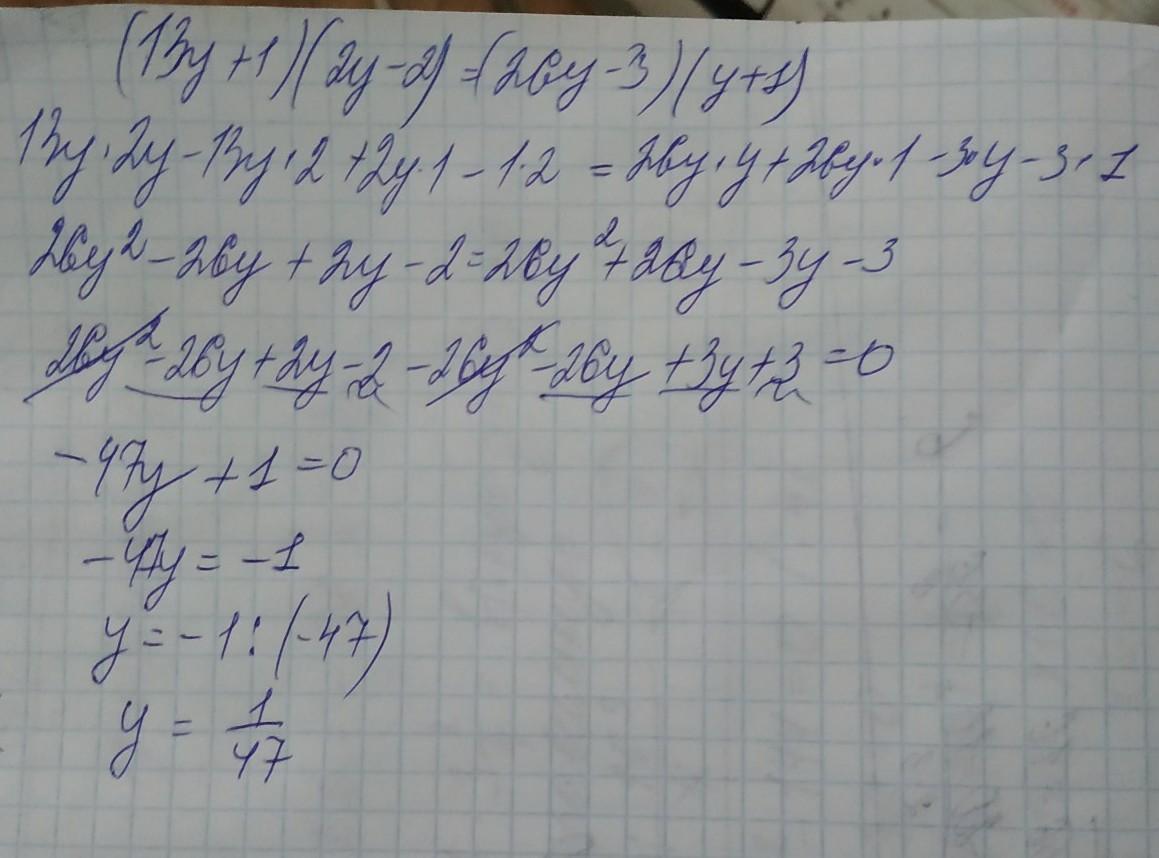 (13y+1)(2y-2)=(26y-3)(y+1)
13y·2y-13y·2+2y·1-1·2=26y·y+26y·1-3·y-3·1
26y²-26y+2y-2=26y²+26y-3y-3
26y²-26y+2y-2-26y²-26y+3y+3=0
-47y+1=0
-47y=-1
y=-1:(-47)
y=1/47